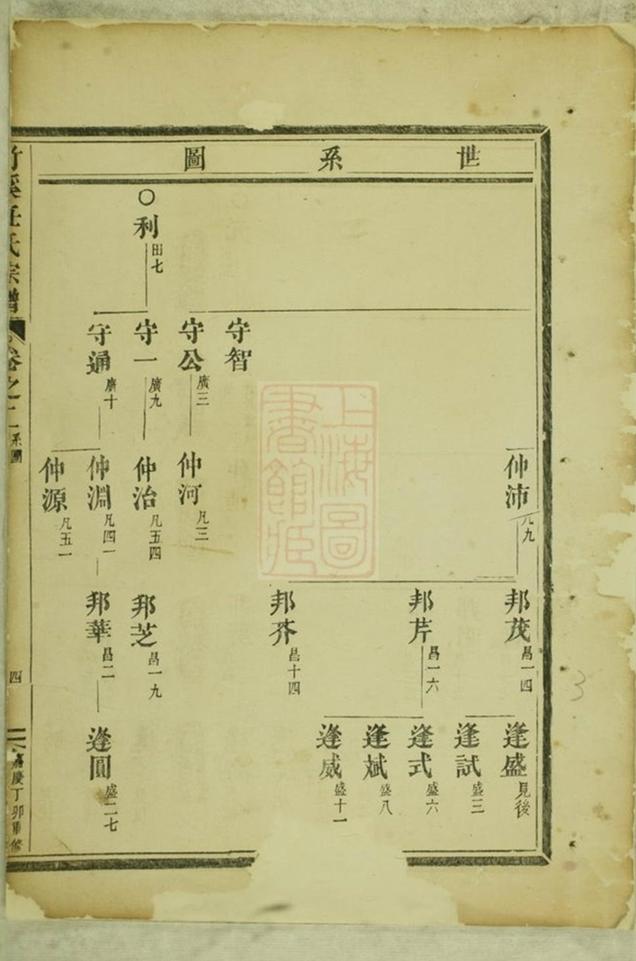 世系圖
仲沛
九
邦茂 昌一四
逢盛 見後
逢試 盛三
邦芹 昌一六
逢式 盛六
逢斌 盛八
逢威 盛十一
邦芥 昌十四
守智
守公 廣三
仲河 凡三
○利 田七
守一 廣九
仲治 凡五四
邦芝 昌一九
守通 廣十
仲淵 凡四一
邦華 昌二
逢圓 盛二七
仲源 凡五一
竹溪任氏宗譜 卷之二 系圖 四 嘉慶丁卯重修
上海圖書館藏
3